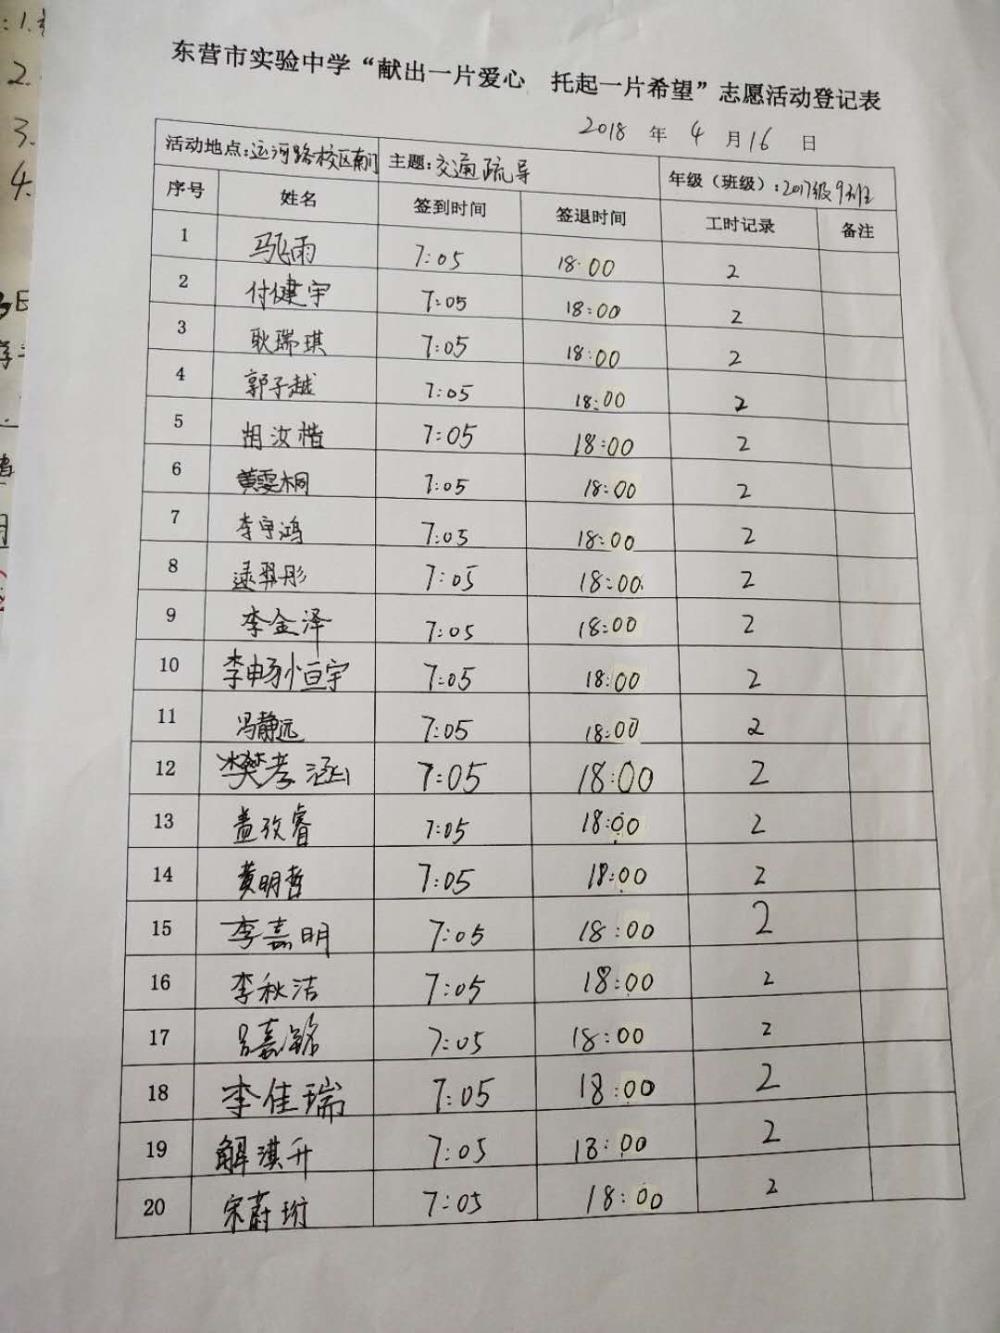 东营市实验中学“献出一片爱心 托起一片希望”志愿活动登记表
2018 年 4 月 16 日
活动地点:运河路校区南门 主题:交通疏导 年级（班级）:2017级9班
序号 姓名 签到时间 签退时间 工时记录 备注
1 马飞雨 7:05 18:00 2
2 付健宇 7:05 18:00 2
3 耿瑞琪 7:05 18:00 2
4 郭子越 7:05 18:00 2
5 胡汝楷 7:05 18:00 2
6 黄雯桐 7:05 18:00 2
7 李宇鸿 7:05 18:00 2
8 逯羿彤 7:05 18:00 2
9 李金泽 7:05 18:00 2
10 李畅孙恒宇 7:05 18:00 2
11 冯静远 7:05 18:00 2
12 樊孝涵 7:05 18:00 2
13 盖孜睿 7:05 18:00 2
14 黄明哲 7:05 18:00 2
15 李嘉明 7:05 18:00 2
16 李秋洁 7:05 18:00 2
17 吕嘉铭 7:05 18:00 2
18 李佳瑞 7:05 18:00 2
19 解淇升 7:05 18:00 2
20 宋蔚珩 7:05 18:00 2
1.
2.
3.
4.